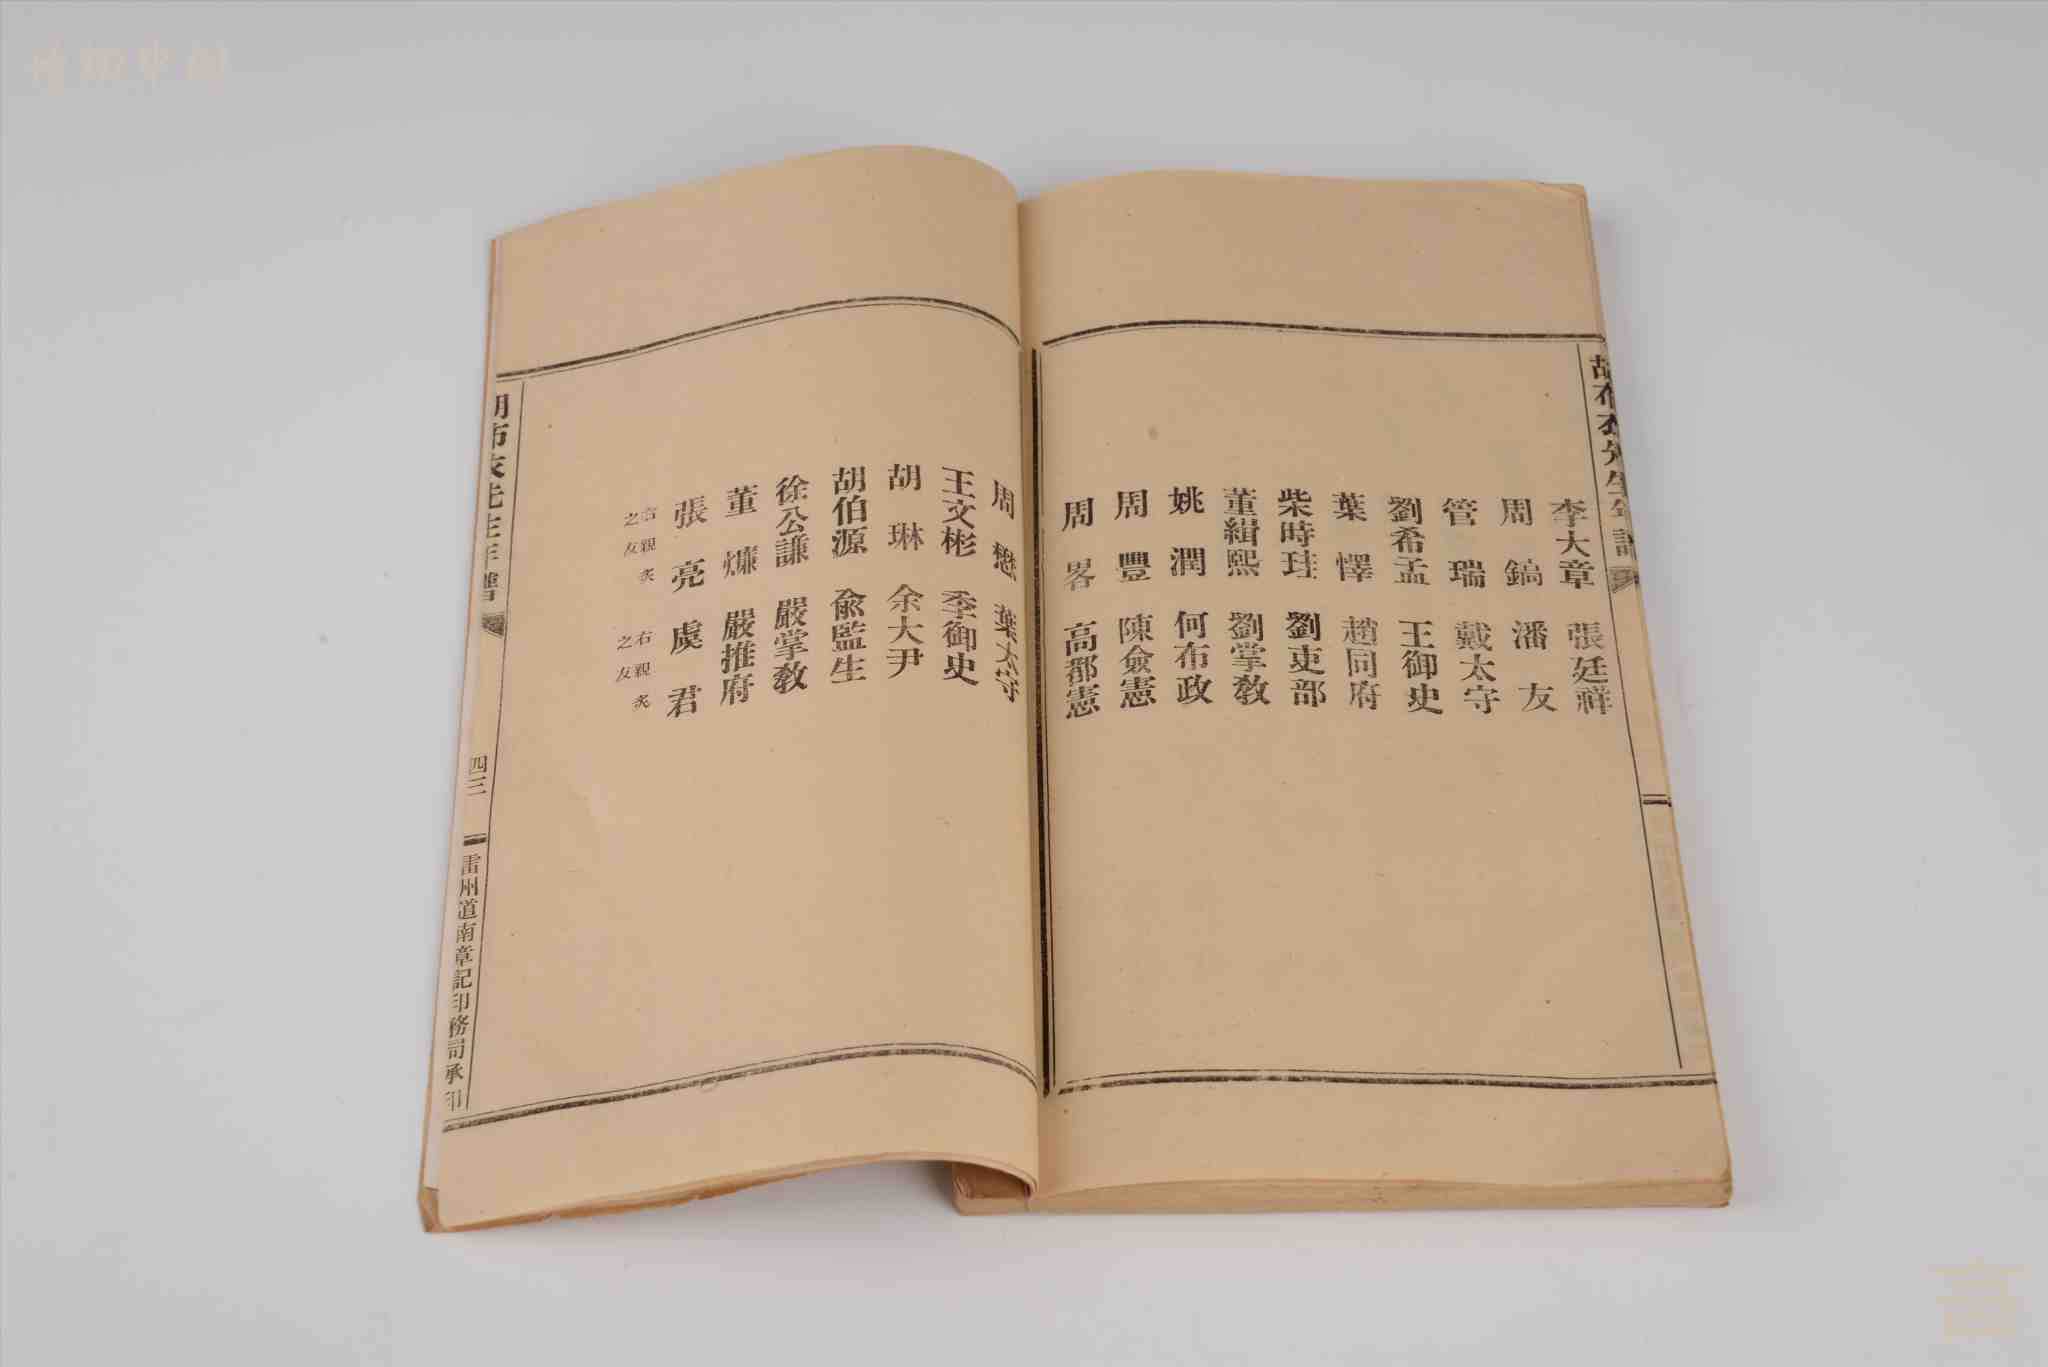 胡布衣先生年譜
李大章 張廷祥
周鎬 潘友
管瑞 戴太守
劉希孟 王御史
葉懌 趙同府
柴時珪 劉吏部
董緝熙 劉掌教
姚潤 何布政
周豐 陳僉憲
周畧 高都憲
周懋 葉太守
王文彬 季御史
胡琳 余大尹
胡伯源 俞監生
徐公謙 嚴掌教
董燫 嚴推府
張亮 虞君
右親炙之友 右親炙之友
胡布衣先生年譜 四三 雷州道南章記印務局承印